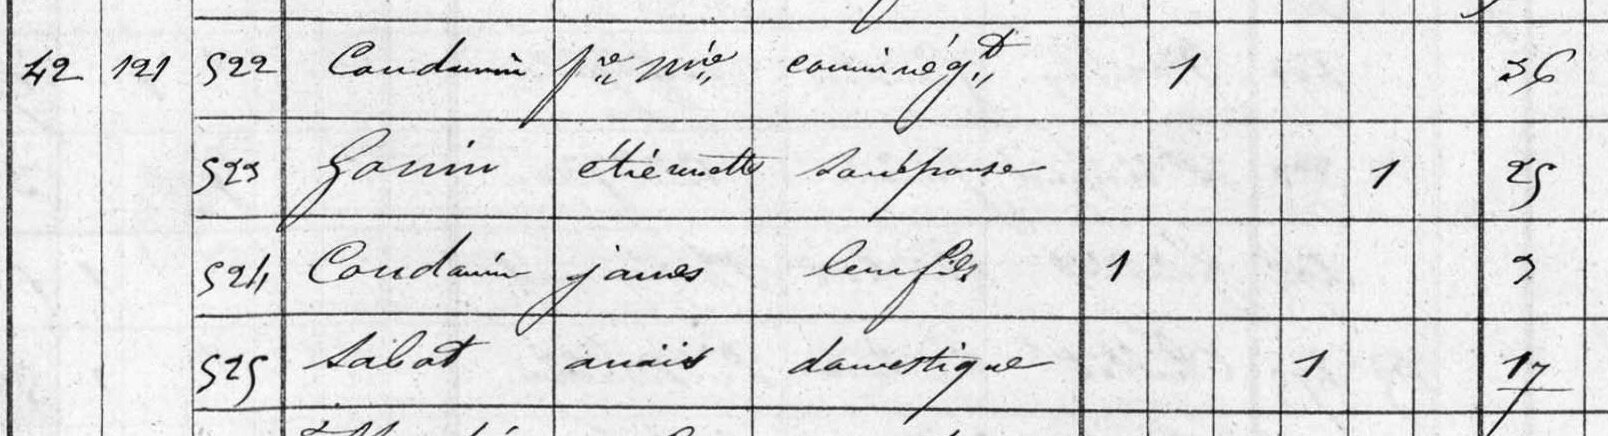 42 121 522 Coudamin pre mie commis négt 1 36
523 Gonin étiennette son épouse 1 25
524 Coudamin james leur fils 1 3
525 Sabot anaïs domestique 1 17